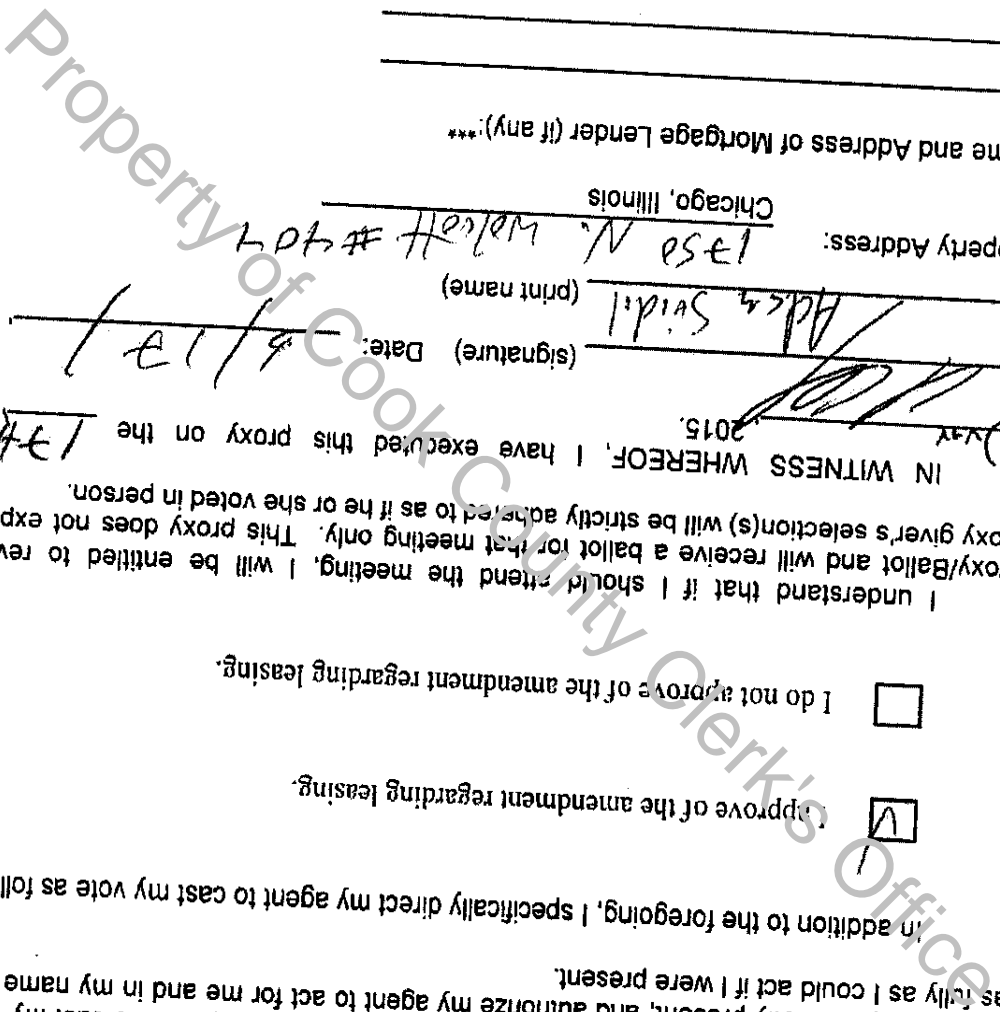 present, and authorize my agent to act for me and in my name
as fully as I could act if I were present.
In addition to the foregoing, I specifically direct my agent to cast my vote as foll
I approve of the amendment regarding leasing.
I do not approve of the amendment regarding leasing.
I understand that if I should attend the meeting, I will be entitled to rev
oxy/Ballot and will receive a ballot for that meeting only. This proxy does not exp
oxy giver's selection(s) will be strictly adhered to as if he or she voted in person.
IN WITNESS WHEREOF, I have executed this proxy on the 17th
June, 2015.
(signature) Date: 6/17/
Adam (print name)
perty Address: 1750 N. Wolcott #404
Chicago, Illinois
me and Address of Mortgage Lender (if any):***
Property of Cook County Clerk's Office